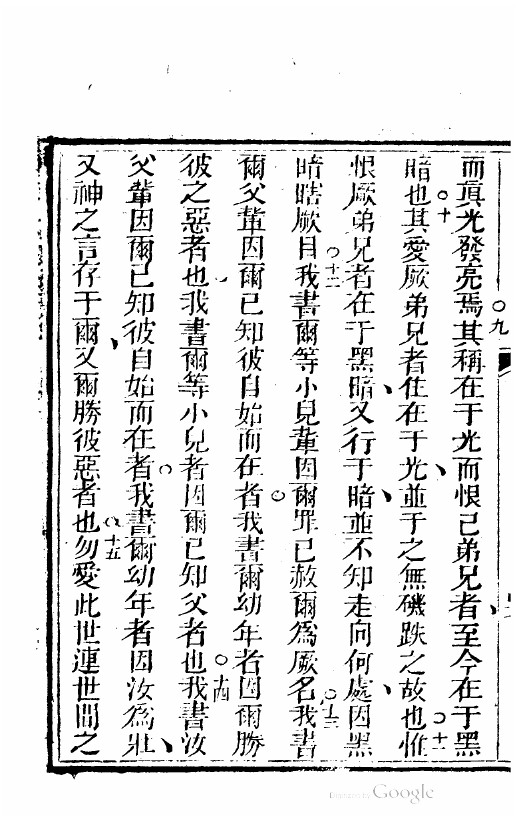 而眞光發亮焉○九其稱在于光而恨己弟兄者至今在于黑
暗也○十其愛厥弟兄者住在于光並于之無礙跌之故也○十一惟
恨厥弟兄者在于黑暗又行于暗並不知走向何處因黑
暗瞎厥目○十二我書爾等小兒輩因爾罪已赦爾爲厥名○十三我書
爾父輩因爾已知彼自始而在者○我書爾幼年者因爾勝
彼之惡者也我書爾等小兒者因爾已知父者也○十四我書汝
父輩因爾已知彼自始而在者○我書爾幼年者因汝爲壯
又神之言存于爾又爾勝彼惡者也○十五勿愛此世連世間之
Digitized by Google